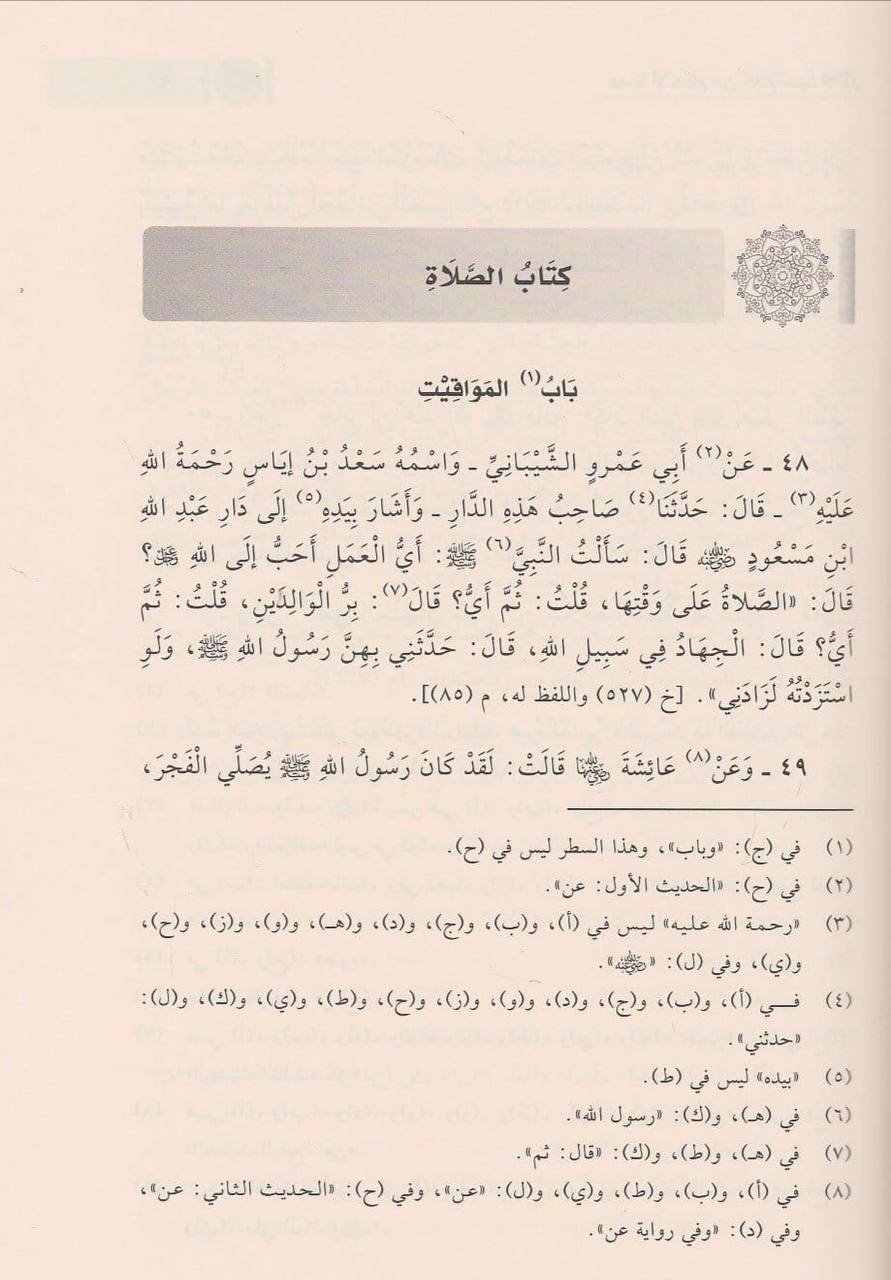 كِتَابُ الصَّلَاةِ
بَابُ(١) المَوَاقِيْتِ
٤٨ ـ عَنْ(٢) أَبِي عَمْرٍو الشَّيْبَانِيِّ ـ وَاسْمُهُ سَعْدُ بْنُ إيَاسٍ رَحْمَةُ اللهِ
عَلَيْهِ(٣) ـ قَالَ: حَدَّثَنَا(٤) صَاحِبُ هَذِهِ الدَّارِ ـ وَأَشَارَ بِيَدِهِ(٥) إلَى دَارِ عَبْدِ اللهِ
ابْنِ مَسْعُودٍ رضي الله عنه قَالَ: سَأَلْتُ النَّبِيَّ(٦) ﷺ: أَيُّ الْعَمَلِ أَحَبُّ إلَى اللهِ عز وجل؟
قَالَ: «الصَّلاةُ عَلَى وَقْتِهَا، قُلْتُ: ثُمَّ أَيُّ؟ قَالَ(٧): بِرُّ الْوَالِدَيْنِ، قُلْتُ: ثُمَّ
أَيُّ؟ قَالَ: الْجِهَادُ فِي سَبِيلِ اللهِ، قَالَ: حَدَّثَنِي بِهِنَّ رَسُولُ اللهِ ﷺ، وَلَوِ
اسْتَزَدْتُهُ لَزَادَنِي». [خ (٥٢٧) واللفظ له، م (٨٥)].
٤٩ ـ وَعَنْ(٨) عَائِشَةَ رضي الله عنها قَالَتْ: لَقَدْ كَانَ رَسُولُ اللهِ ﷺ يُصَلِّي الْفَجْرَ،
(١) في (ج): «وباب»، وهذا السطر ليس في (ح).
(٢) في (ح): «الحديث الأول: عن».
(٣) «رحمة الله عليه» ليس في (أ)، و(ب)، و(ج)، و(د)، و(هـ)، و(و)، و(ز)، و(ح)،
و(ي)، وفي (ل): «رضي الله عنه».
(٤) فــي (أ)، و(ب)، و(ج)، و(د)، و(و)، و(ز)، و(ح)، و(ط)، و(ي)، و(ك)، و(ل):
«حدثني».
(٥) «بيده» ليس في (ط).
(٦) في (هـ)، و(ك): «رسول الله».
(٧) في (هـ)، و(ط)، و(ك): «قال: ثم».
(٨) في (أ)، و(ب)، و(ط)، و(ي)، و(ل): «عن»، وفي (ح): «الحديث الثاني: عن»،
وفي (د): «وفي رواية عن».